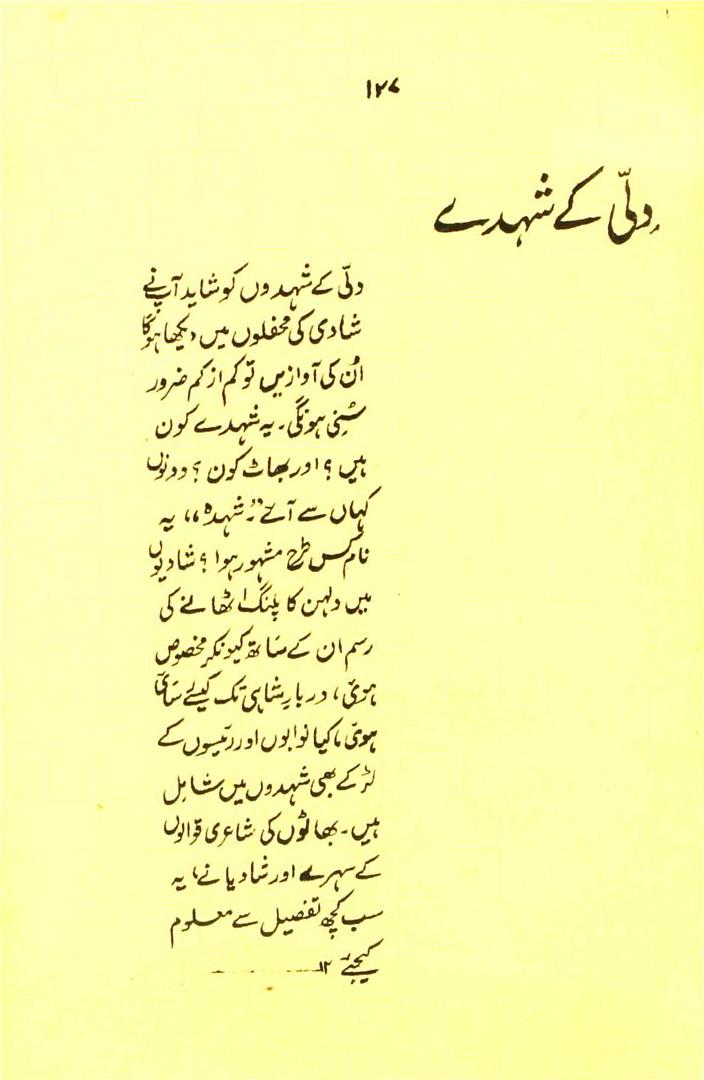 ۱۲۷
دِلّی کے شہدے
دلّی کے شہدوں کو شاید آپ نے
شادی کی محفلوں میں دیکھا ہوگا
اُن کی آوازیں تو کم از کم ضرور
سُنی ہونگی۔ یہ شہدے کون
ہیں؟ اور بھاٹ کون؟ دونوں
کہاں سے آئے۔ "شہدہ" یہ
نام کس طرح مشہور ہوا؟ شادیوں
میں دلہن کا پلنگ اٹھانے کی
رسم ان کے ساتھ کیونکر مخصوص
ہوئی، دربارِ شاہی تک کیسے رسائی
ہوئی، کیا نوابوں اور رئیسوں کے
لڑکے بھی شہدوں میں شامل
ہیں۔ بھاٹوں کی شاعری قوالوں
کے سہرے اور شادیانے، یہ
سب کچھ تفصیل سے معلوم
کیجئے ۱۲